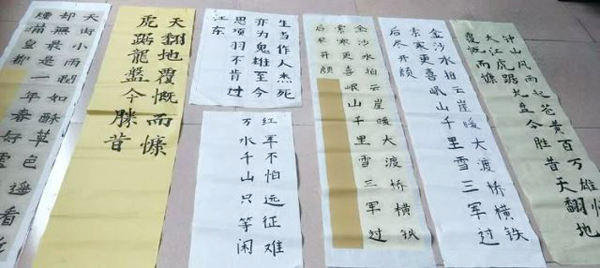 天街小雨潤如酥草色遥看近
却無最是一年春好處
煙柳滿皇都
天翻地覆慨而慷
虎踞龍盤今勝昔
生当作人杰死
亦为鬼雄至今
思项羽不肯过
江东
红军不怕远征难
万水千山只等闲
金沙水拍云崖暖大渡桥横铁
索寒更喜岷山千里雪三军过
后尽开颜
金沙水拍云崖暖大渡桥横铁
索寒更喜岷山千里雪三军过
后尽开颜
钟山风雨起苍黄百万雄师
大江虎踞龙盘今胜昔天翻地
覆慨而慷